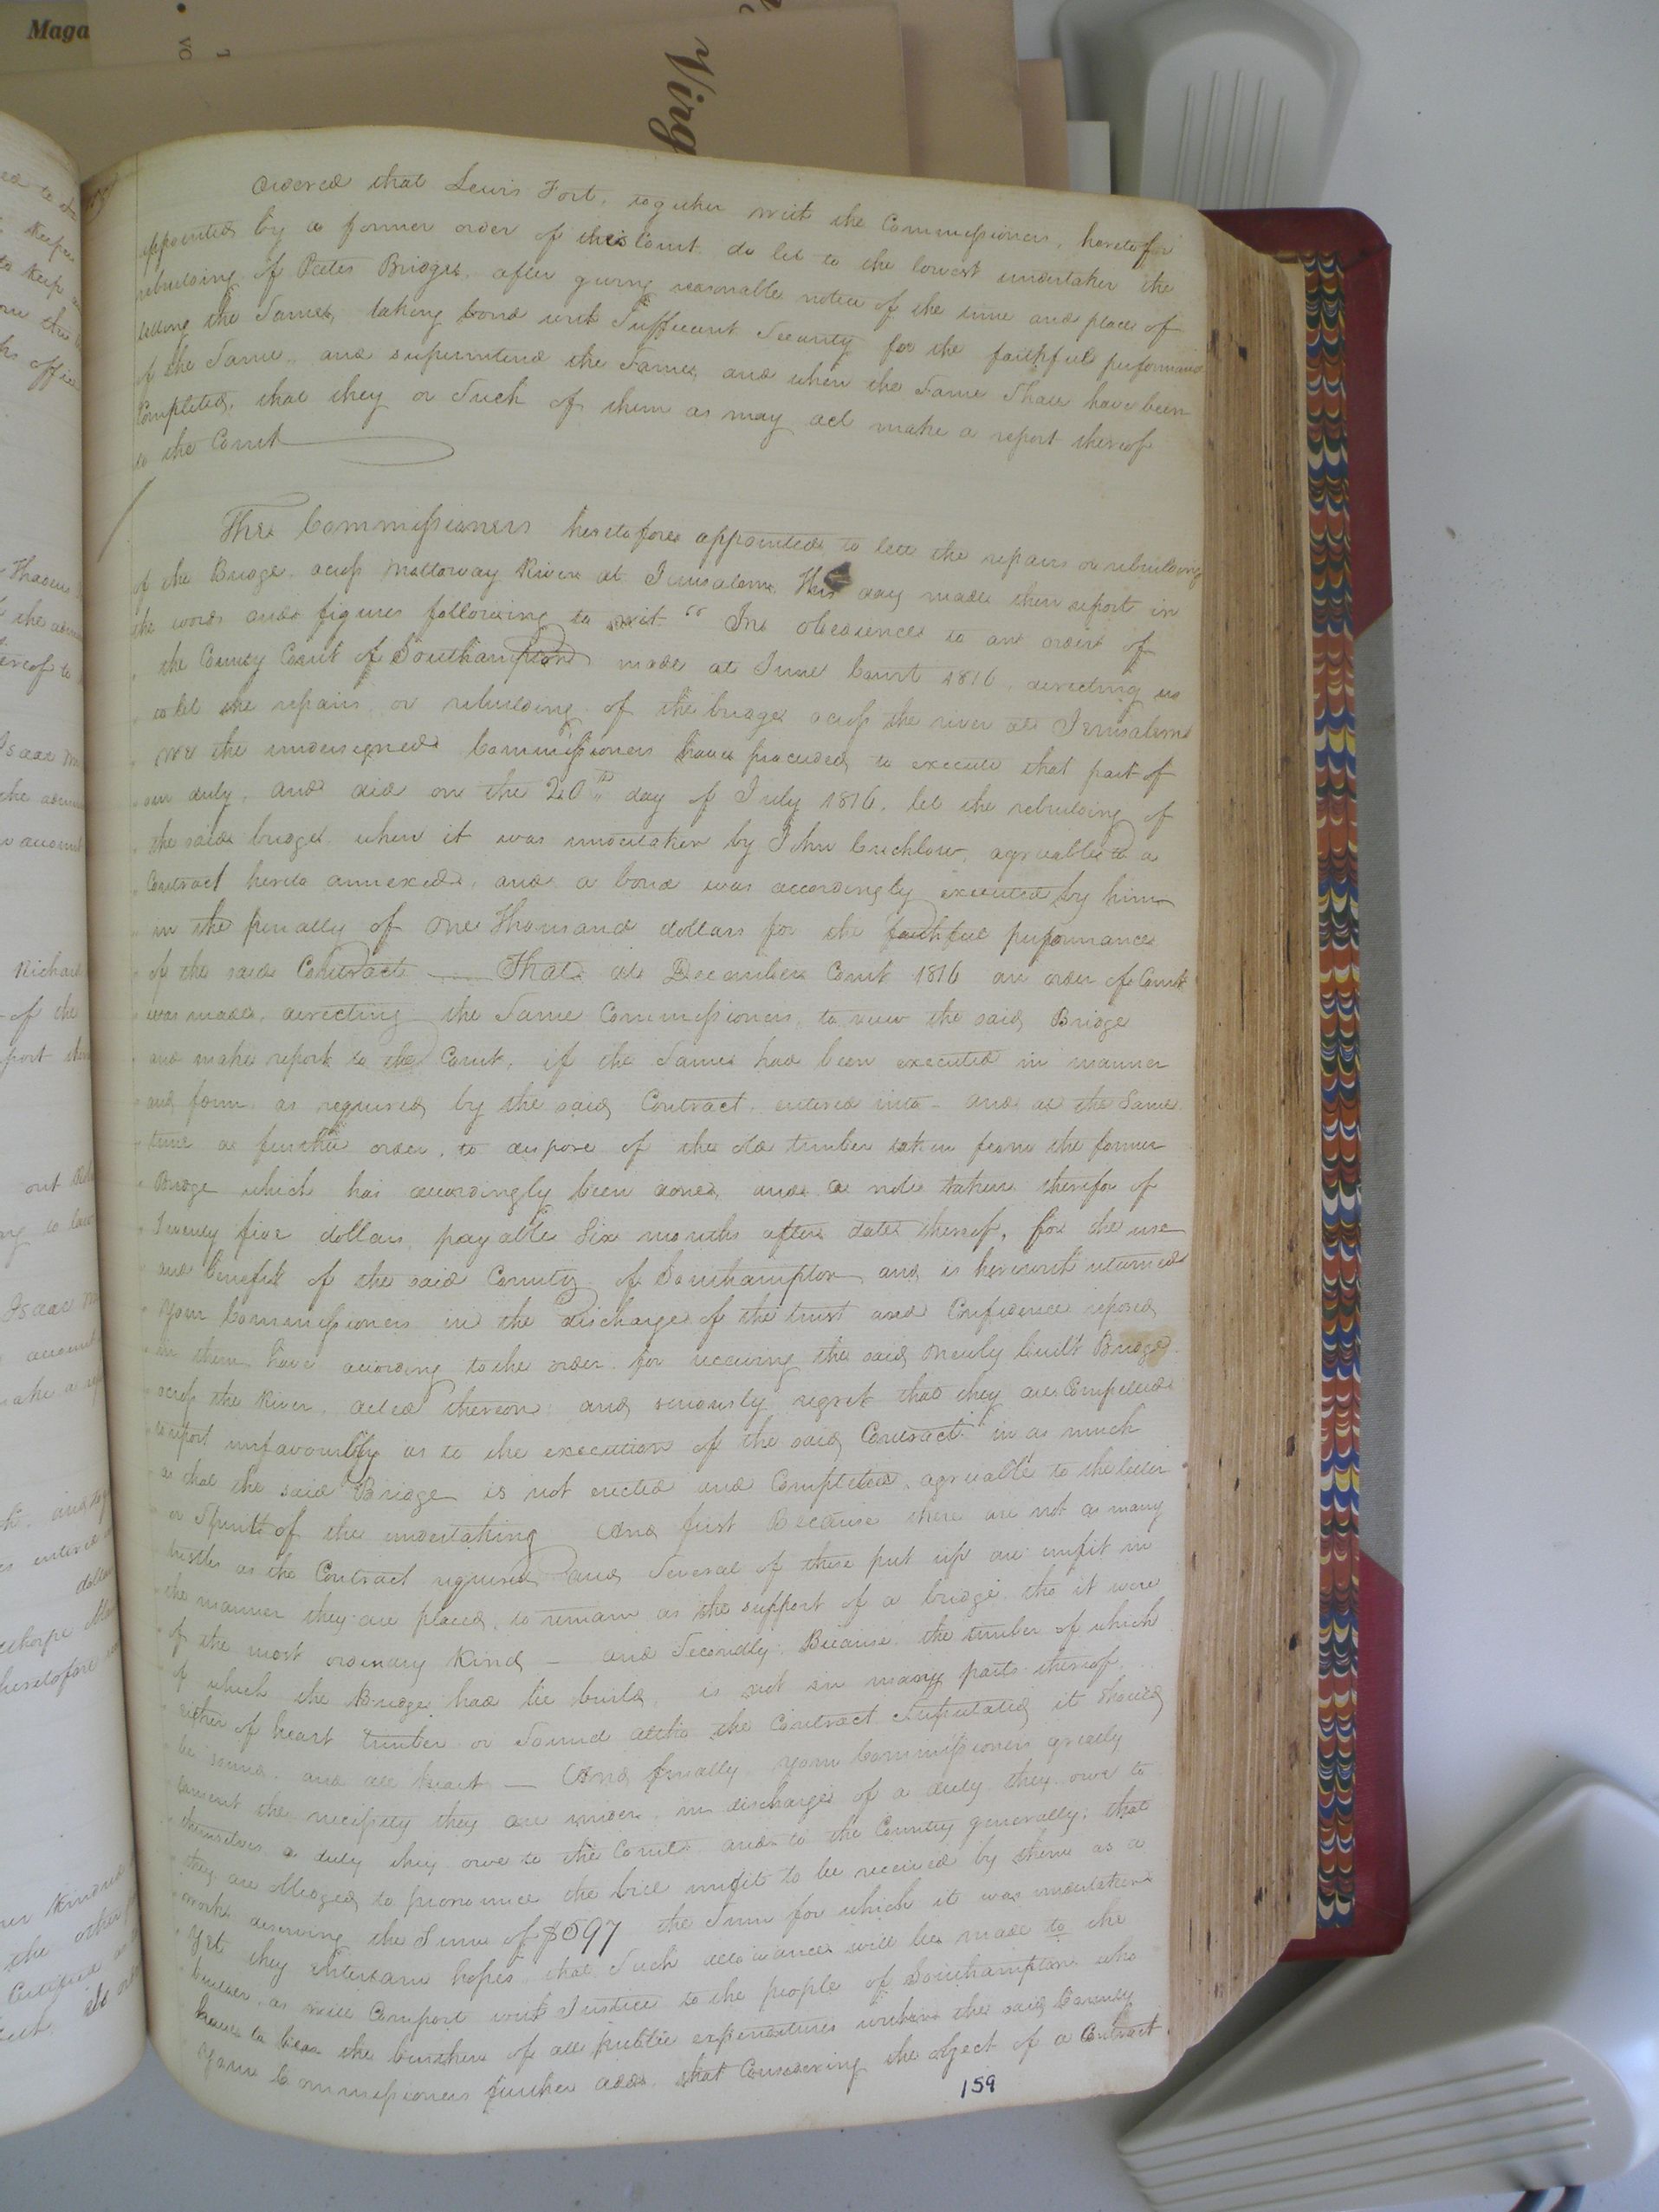 Maga
Virg
Ordered that Lewis Fort, together with the Commissioners, heretofor
appointed by a former order of this Court do let to the lowest undertaker the
rebuilding of Bridge, after giving reasonable notice of the time and place of
letting the Same, taking bond with Sufficient Security for the faithful performance
of the Same, and superintend the Same, and when the Same Shall have been
Completed, that they or Such of them as may act make a report thereof
to the Court
The Commissioners heretofore appointed to let the repairs or rebuilding
of the Bridge across Nottoway River at Jerusalem This day made their report in
the words and figures following to wit. "In obedience to an order of
the County Court of Southampton made at June Court 1816, directing us
to let the repairs or rebuilding of the bridge across the river at Jerusalem
We the undersigned Commissioners have proceeded to execute that part of
our duty, and did on the 20th day of July 1816, let the rebuilding of
the said bridge, when it was undertaken by John Crichlow, agreeable to a
Contract hereto annexed, and a bond was accordingly executed by him
in the penalty of One Thousand dollars for the faithful performance
of the said Contract — That at December Court 1816 an order of Court
was made, directing the Same Commissioners, to view the said Bridge
and make report to the Court, if the Same had been executed in manner
and form as required by the said Contract entered into – and at the Same
time a further order, to dispose of the old timber taken from the former
Bridge which has accordingly been done, and a note taken therefor of
Twenty five dollars, payable Six months after date thereof, for the use
and benefit of the said County of Southampton and is herewith returned
Your Commissioners in the discharge of the trust and Confidence reposed
in them have according to the order for receiving the said newly built Bridge
across the River, acted thereon, and seriously regret that they are Compelled
to report unfavourably as to the execution of the said Contract in as much
as that the said Bridge is not erected and Completed, agreeable to the letter
or Spirit of the undertaking And first Because there are not as many
trestles as the Contract required and Several of those put up are unfit in
the manner they are placed, to remain as the support of a bridge tho it were
of the most ordinary Kind — and Secondly Because the timber of which
of which the Bridge had be build, is not in many parts thereof,
either of heart timber or Sound altho the Contract Stipulated it should
be sound and all heart — And finally your Commissioners greatly
lament the necessity they are under in discharge of a duty they owe to
themselves a duty they owe to the Court and to the Country generally, that
they are Obliged to pronounce the bridge unfit to be received by them as a
work deserving the Sum of $597 the Sum for which it was undertaken
Yet they entertain hopes that Such allowance will be made to the
builder, as will Comport with Justice to the people of Southampton who
have to bear the burthen of all public expenditures within the said County
Your Commissioners further add that Considering the object of a Contract
159